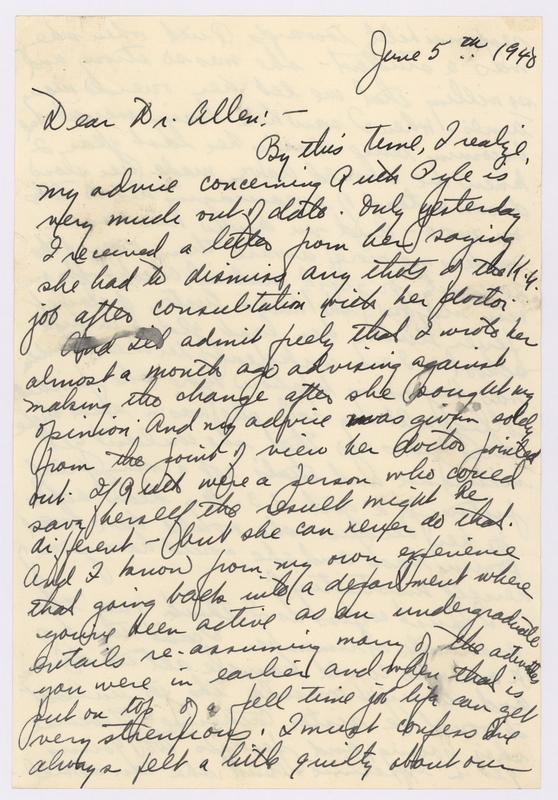 June 5th 1948
Dear Dr. Allen: —
By this time, I realize,
my advice concerning Ruth Pyle is
very much out of date. Only yesterday
I received a letter from her saying
she had to dismiss any thots of the K.U.
job after consultation with her doctor.
And I'll admit freely that I wrote her
almost a month ago advising against
making the change after she sought my
opinion. And my advice was given solely
from the point of view her doctor pointed
out. If Ruth were a person who could
save herself the result might be
different – but she can never do that.
And I know from my own experience
that going back into a department where
you've been active as an undergraduate
entails re-assuming many of the activities
you were in earlier and when that is
put on top of a full time job life can get
very strenuous. I must confess I've
always felt a little guilty about our